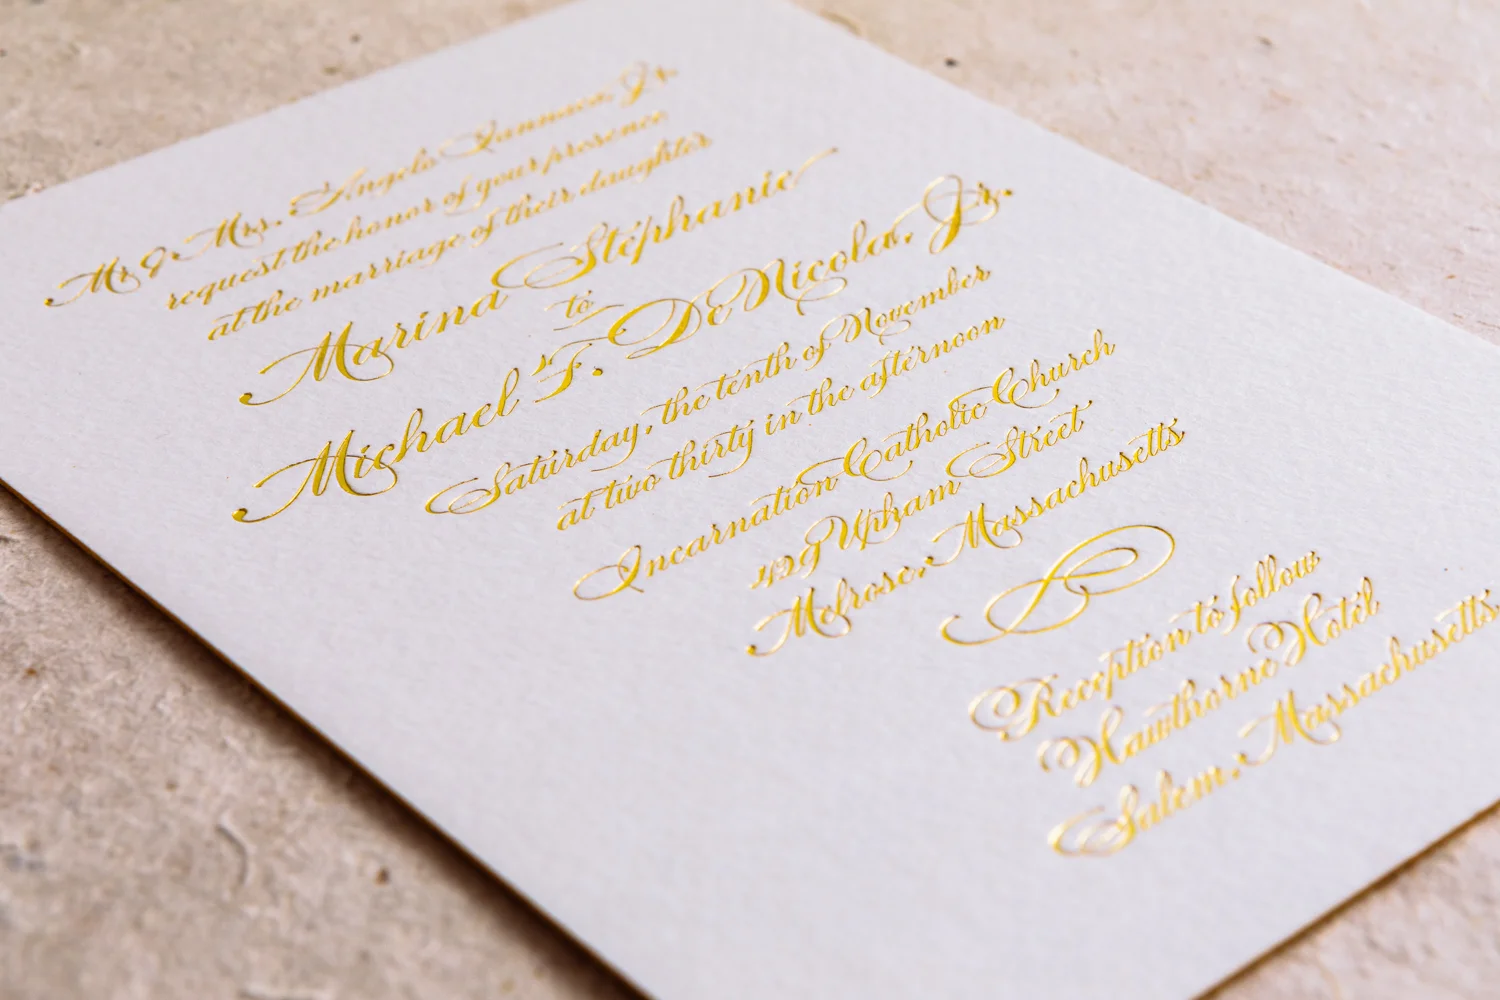 Mr & Mrs. Angelo Iannuco, Jr.
request the honor of your presence
at the marriage of their daughter
Marina Stephanie
to
Michael F. DeNicola, Jr.
Saturday, the tenth of November
at two thirty in the afternoon
Incarnation Catholic Church
429 Upham Street
Melrose, Massachusetts
Reception to follow
Hawthorne Hotel
Salem, Massachusetts